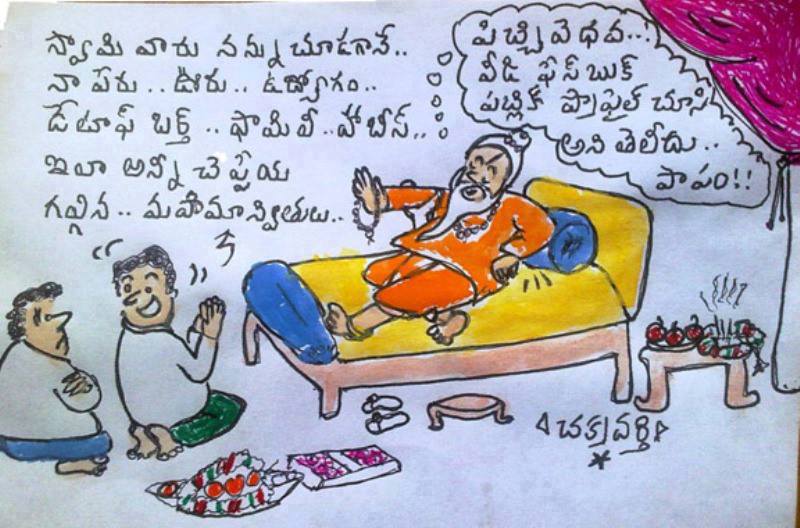 స్వామి వారు నన్ను చూడగానే..
నా పేరు.. ఊరు.. ఉద్యోగం..
డేటాఫ్ బర్త్.. ఫామిలీ.. హాబీస్..
ఇలా అన్నీ చెప్పేయ
గల్గిన.. మహిమాన్వితులు..
పిచ్చి వెధవ..!
వీడి ఫేస్ బుక్
పబ్లిక్ ప్రొఫైల్ చూసి
అని తెలీదు..
పాపం!!
చక్రవర్తి